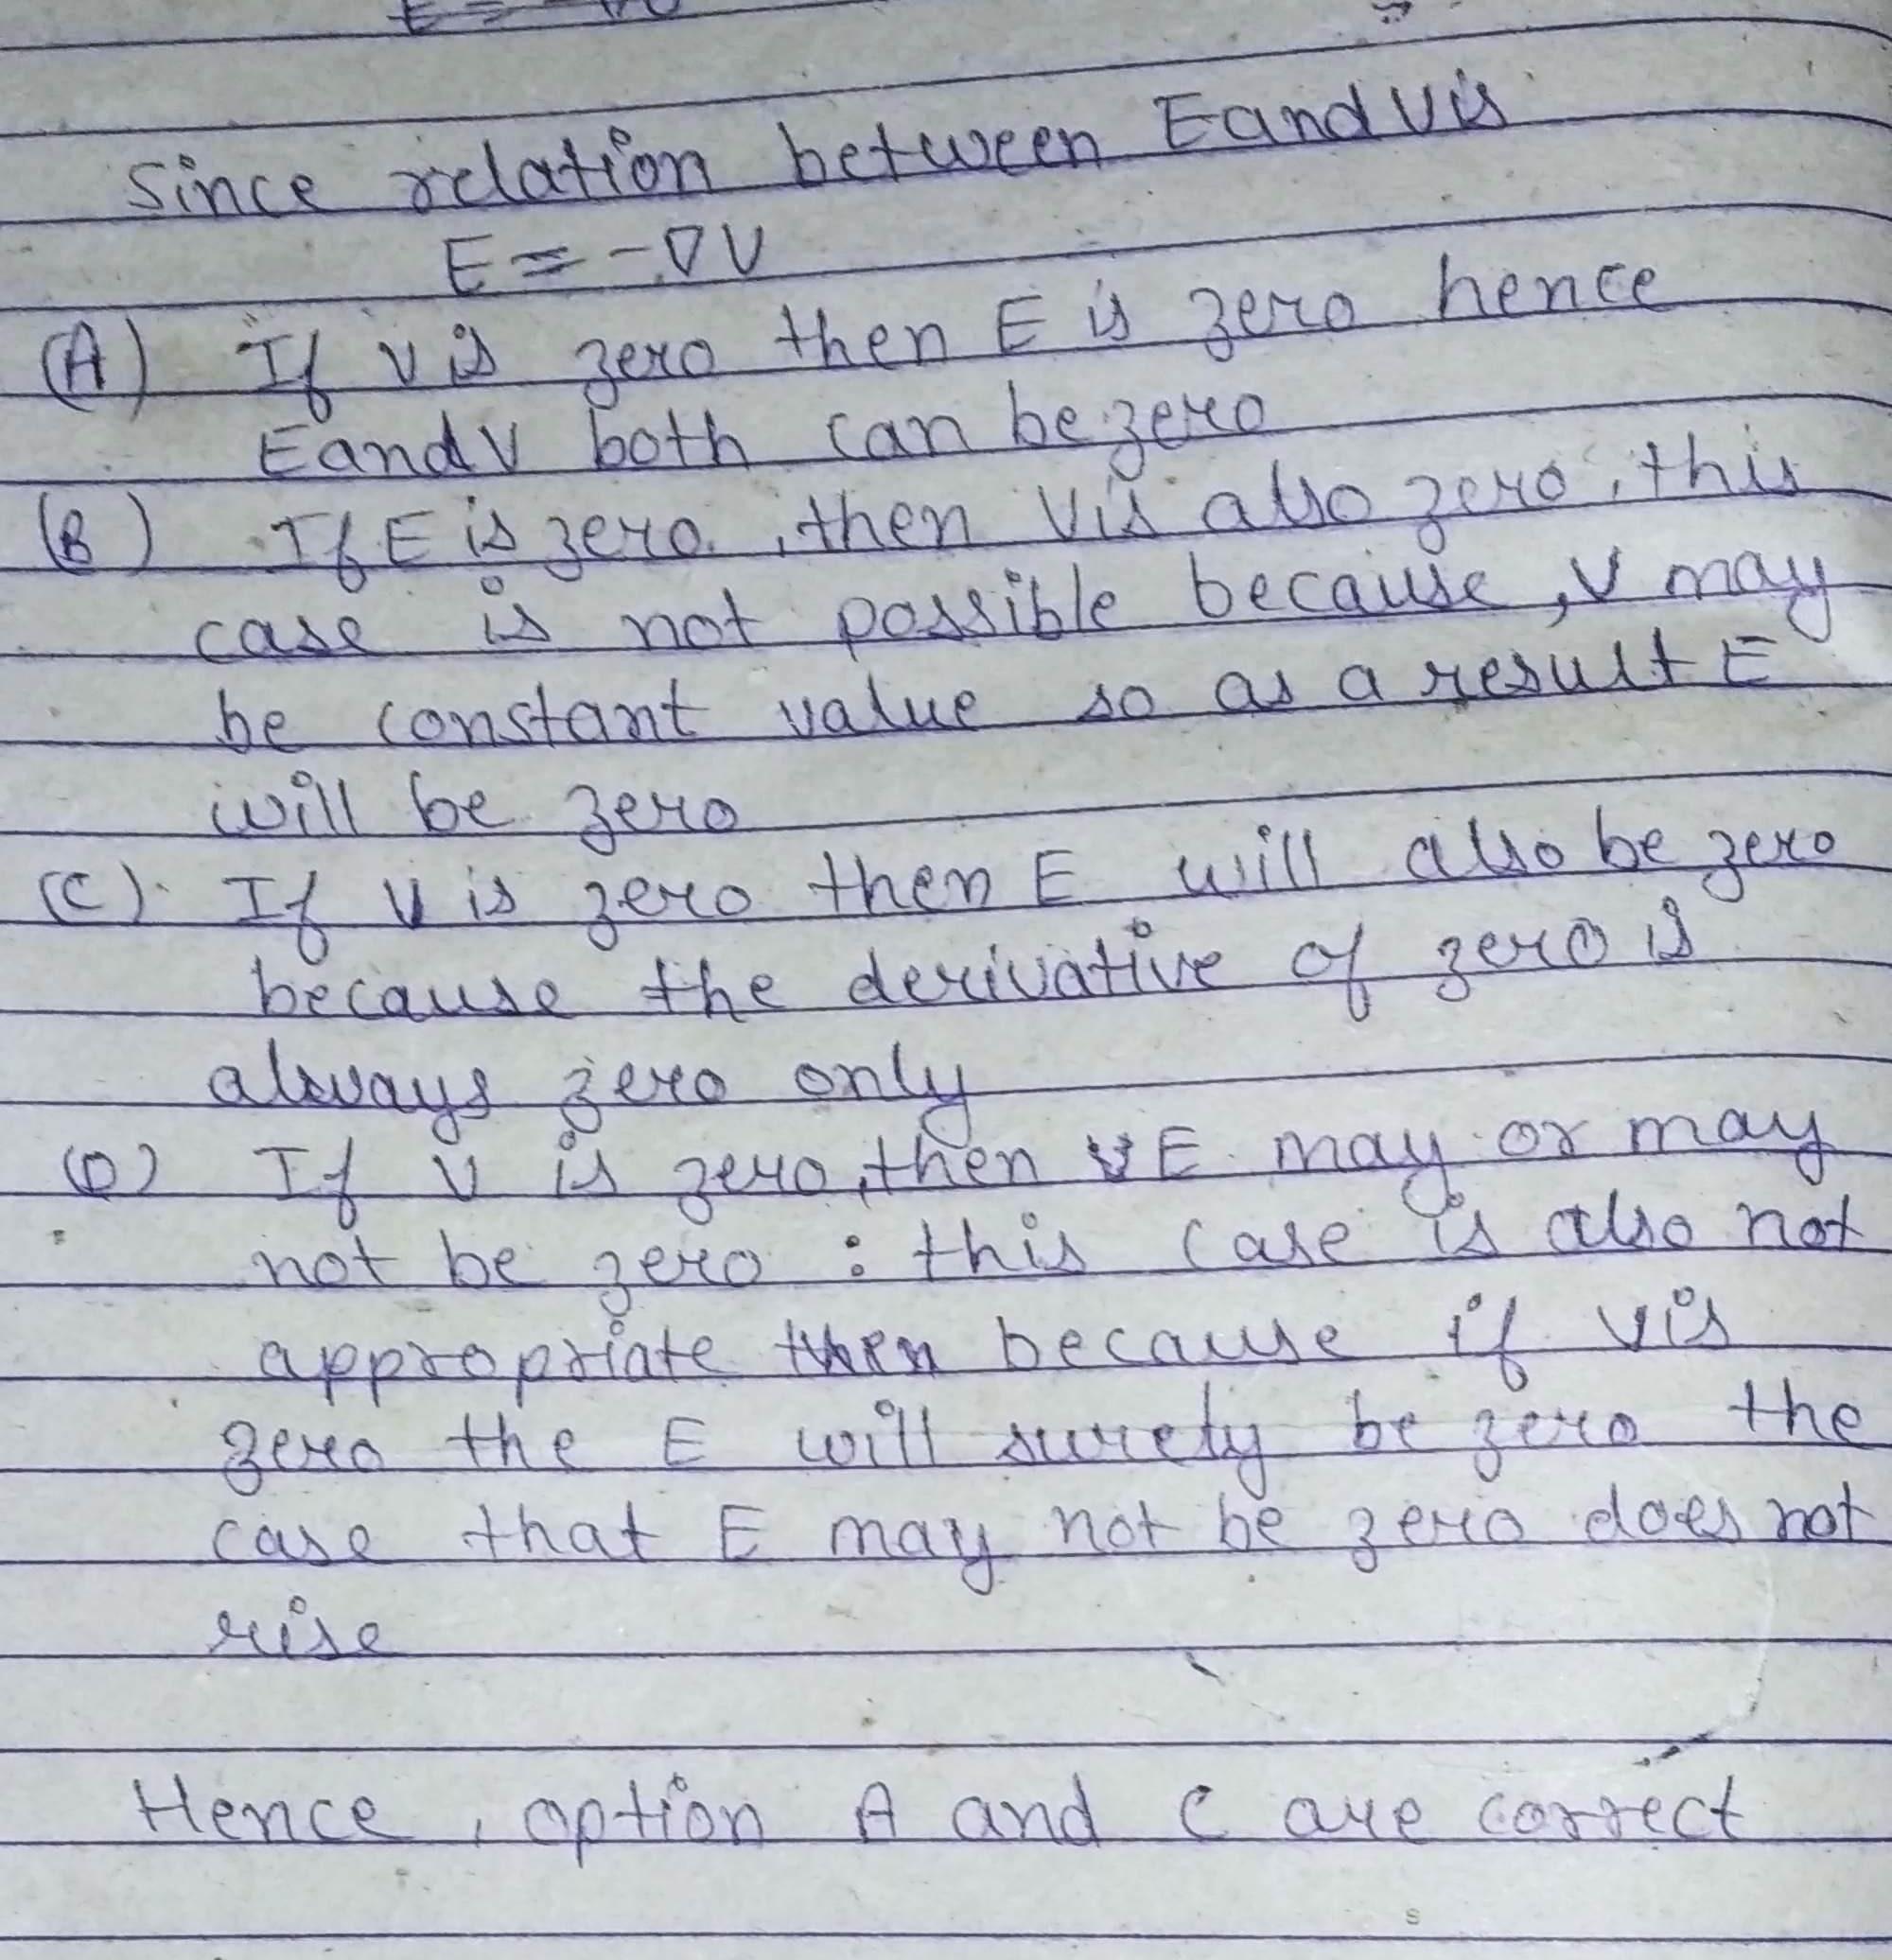 Since relation between E and V is
E = -∇V
(A) If V is zero then E is zero hence
E and V both can be zero
(B) If E is zero, then V is also zero, this
case is not possible because, V may
be constant value so as a result E
will be zero
(C) If V is zero then E will also be zero
because the derivative of zero is
always zero only
(D) If V is zero, then E may or may
not be zero : this case is also not
appropriate because if V is
zero the E will surety be zero the
case that E may not be zero does not
rise
Hence, option A and C are correct